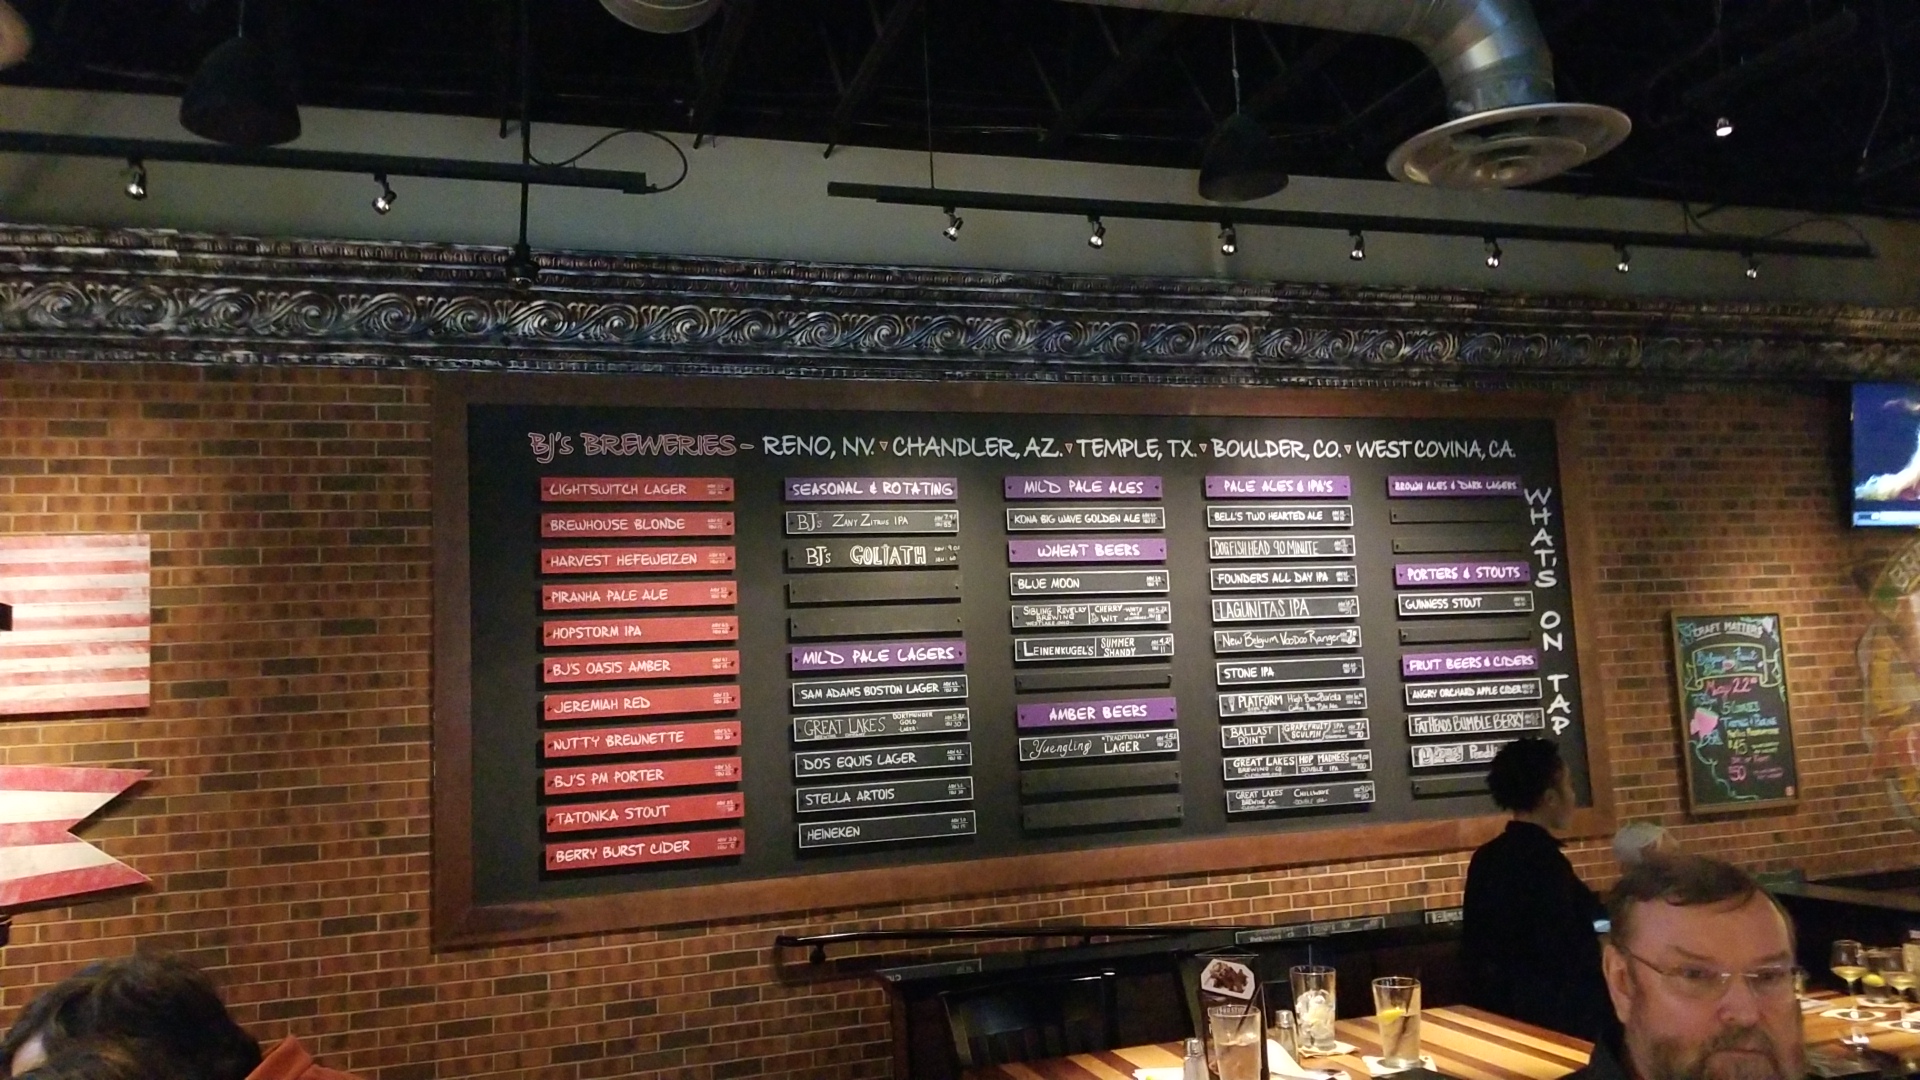 BJ's BREWERIES - RENO, NV. CHANDLER, AZ. TEMPLE, TX. BOULDER, CO. WEST COVINA, CA.
LIGHTSWITCH LAGER
BREWHOUSE BLONDE
HARVEST HEFEWEIZEN
PIRANHA PALE ALE
HOPSTORM IPA
BJ'S OASIS AMBER
JEREMIAH RED
NUTTY BREWNETTE
BJ'S PM PORTER
TATONKA STOUT
BERRY BURST CIDER
SEASONAL & ROTATING
BJ's ZANY ZITRUS IPA
BJ's GOLIATH
MILD PALE LAGERS
SAM ADAMS BOSTON LAGER
GREAT LAKES DORTMUNDER GOLD LAGER
DOS EQUIS LAGER
STELLA ARTOIS
HEINEKEN
MILD PALE ALES
KONA BIG WAVE GOLDEN ALE
WHEAT BEERS
BLUE MOON
SIBLING REVELRY BREWING CHERRY WIT
LEINENKUGEL'S SUMMER SHANDY
AMBER BEERS
Yuengling "TRADITIONAL" LAGER
PALE ALES & IPA'S
BELL'S TWO HEARTED ALE
DOGFISH HEAD 90 MINUTE
FOUNDERS ALL DAY IPA
LAGUNITAS IPA
New Belgium VooDoo Ranger
STONE IPA
PLATFORM
BALLAST POINT GRAPEFRUIT SCULPIN IPA
GREAT LAKES BREWING CO HOP MADNESS DOUBLE IPA
GREAT LAKES BREWING Co. CHILLWAVE DOUBLE IPA
BROWN ALES & DARK LAGERS
PORTERS & STOUTS
GUINNESS STOUT
FRUIT BEERS & CIDERS
ANGRY ORCHARD APPLE CIDER
FATHEADS BUMBLE BERRY
WHAT'S ON TAP
CRAFT MATTERS
May 22nd
5 COURSES
$45
$50